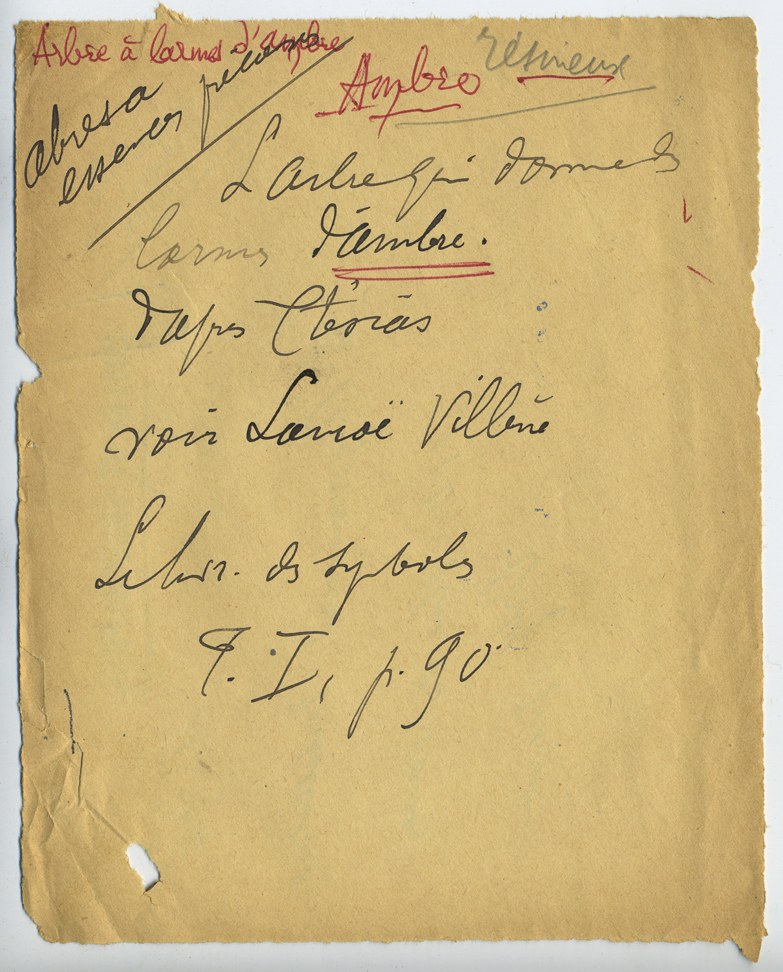 Arbre à larmes d'ambre
résineux
Ambre
abres a
essences précieuses
L'arbre qui donne des
larmes d'ambre.
d'apres Ctésias
voir Lanoë Villène
Le livr. des symboles
T. I, p. 90